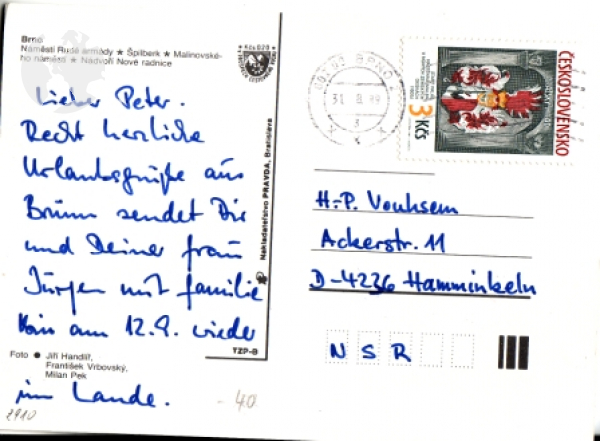 Brno
Náměstí Rudé armády ★ Špilberk ★ Malinovské-
ho náměstí ★ Nádvoří Nové radnice
Lieber Peter.
Recht herzliche
Urlaubsgrüße aus
Brünn sendet Dir
und Deiner Frau
Jürgen mit Familie
Bin am 12.9. wieder
im Lande.
Foto ● Jiří Handlíř,
František Vrbovský,
Milan Pek
2910
-40
Nakladatelstvo PRAVDA, Bratislava
YZP-B
Kčs 0,20
BRNO
31. 8. 89
ČESKOSLOVENSKO
3 Kčs
H.-P. Vouhsem
Ackerstr. 11
D-4236 Hamminkeln
N S R